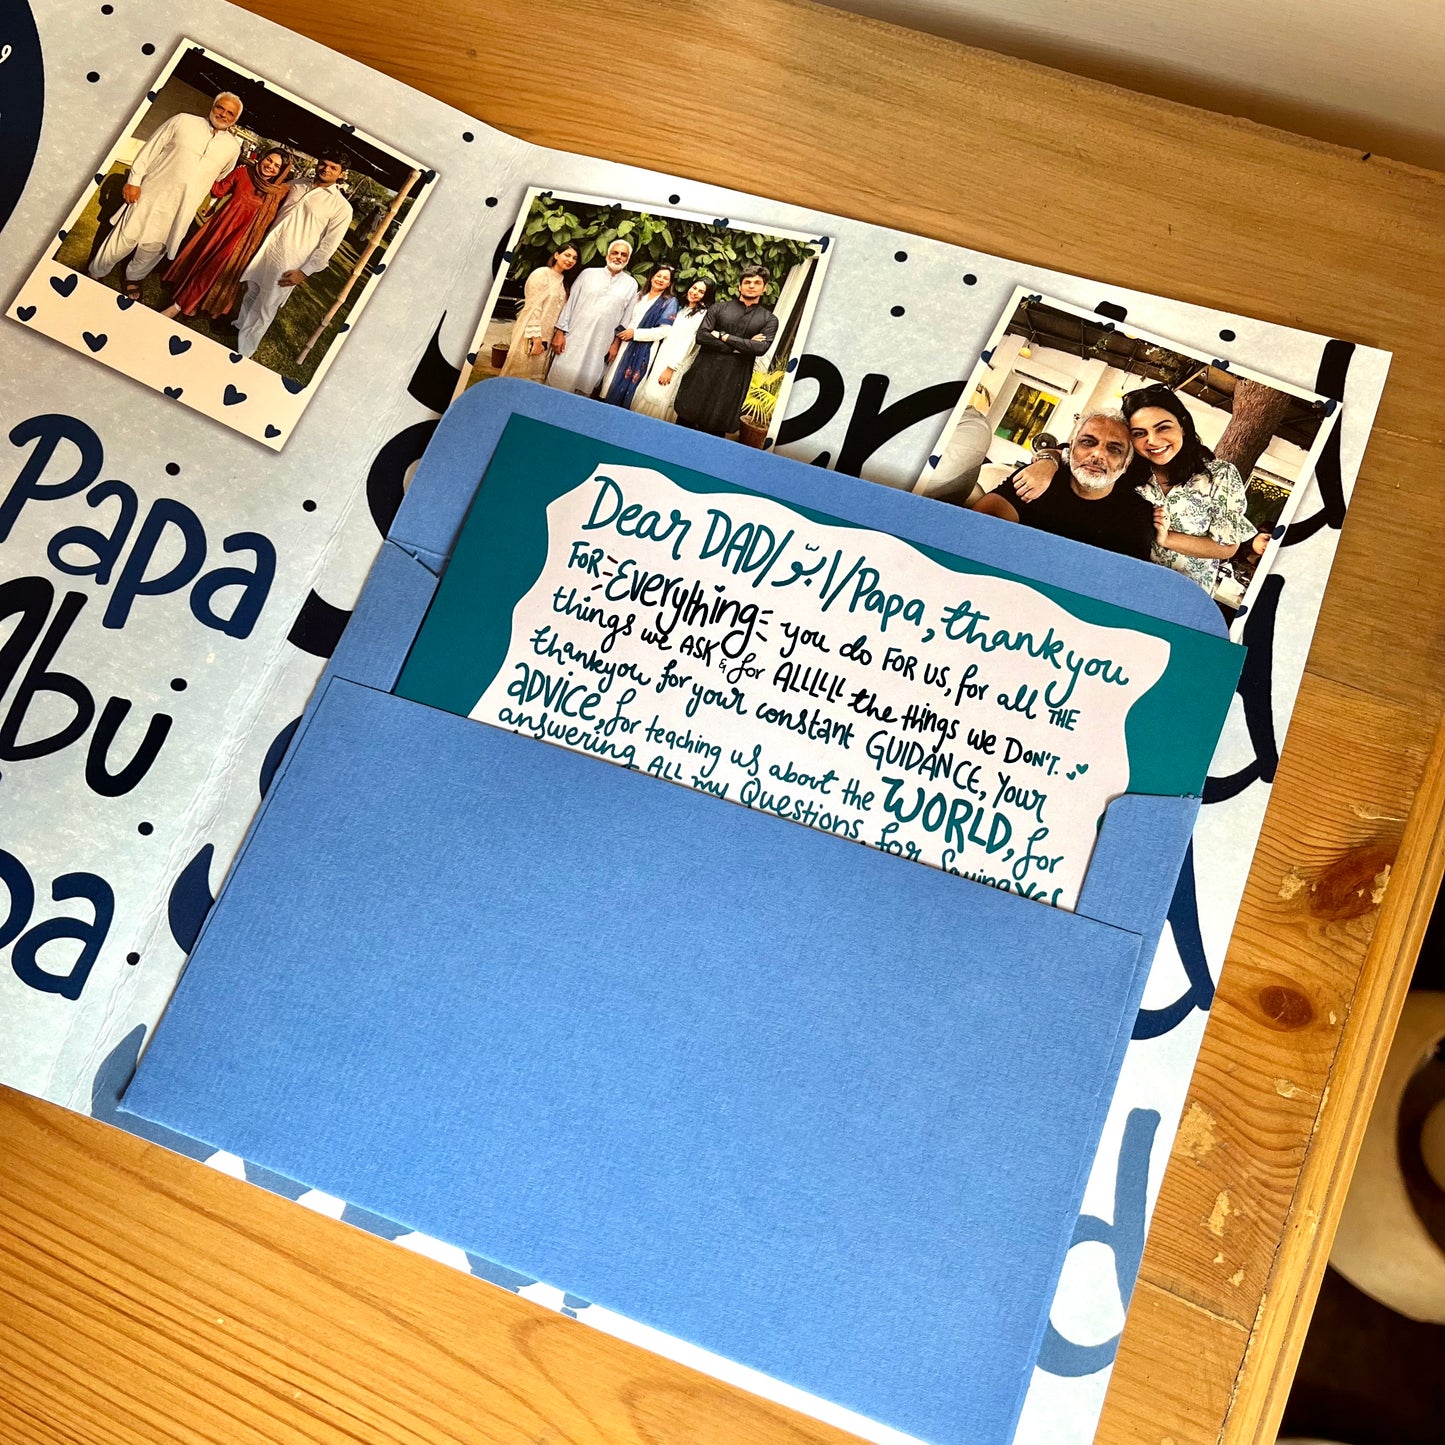 Papa
Abu
Dear DAD/ابّو/Papa, thankyou
FOR Everything you do FOR US, for all THE
things we ASK & for ALLLLL the things we DON'T.
thankyou for your constant GUIDANCE, your
ADVICE, for teaching us about the WORLD, for
answering ALL my Questions, for Saying yes